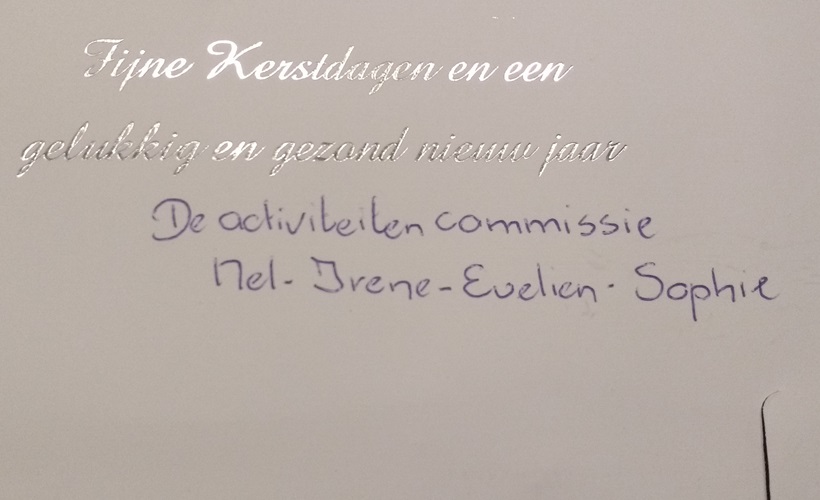 Fijne Kerstdagen en een
gelukkig en gezond nieuw jaar
De activiteiten commissie
Nel - Irene - Evelien - Sophie